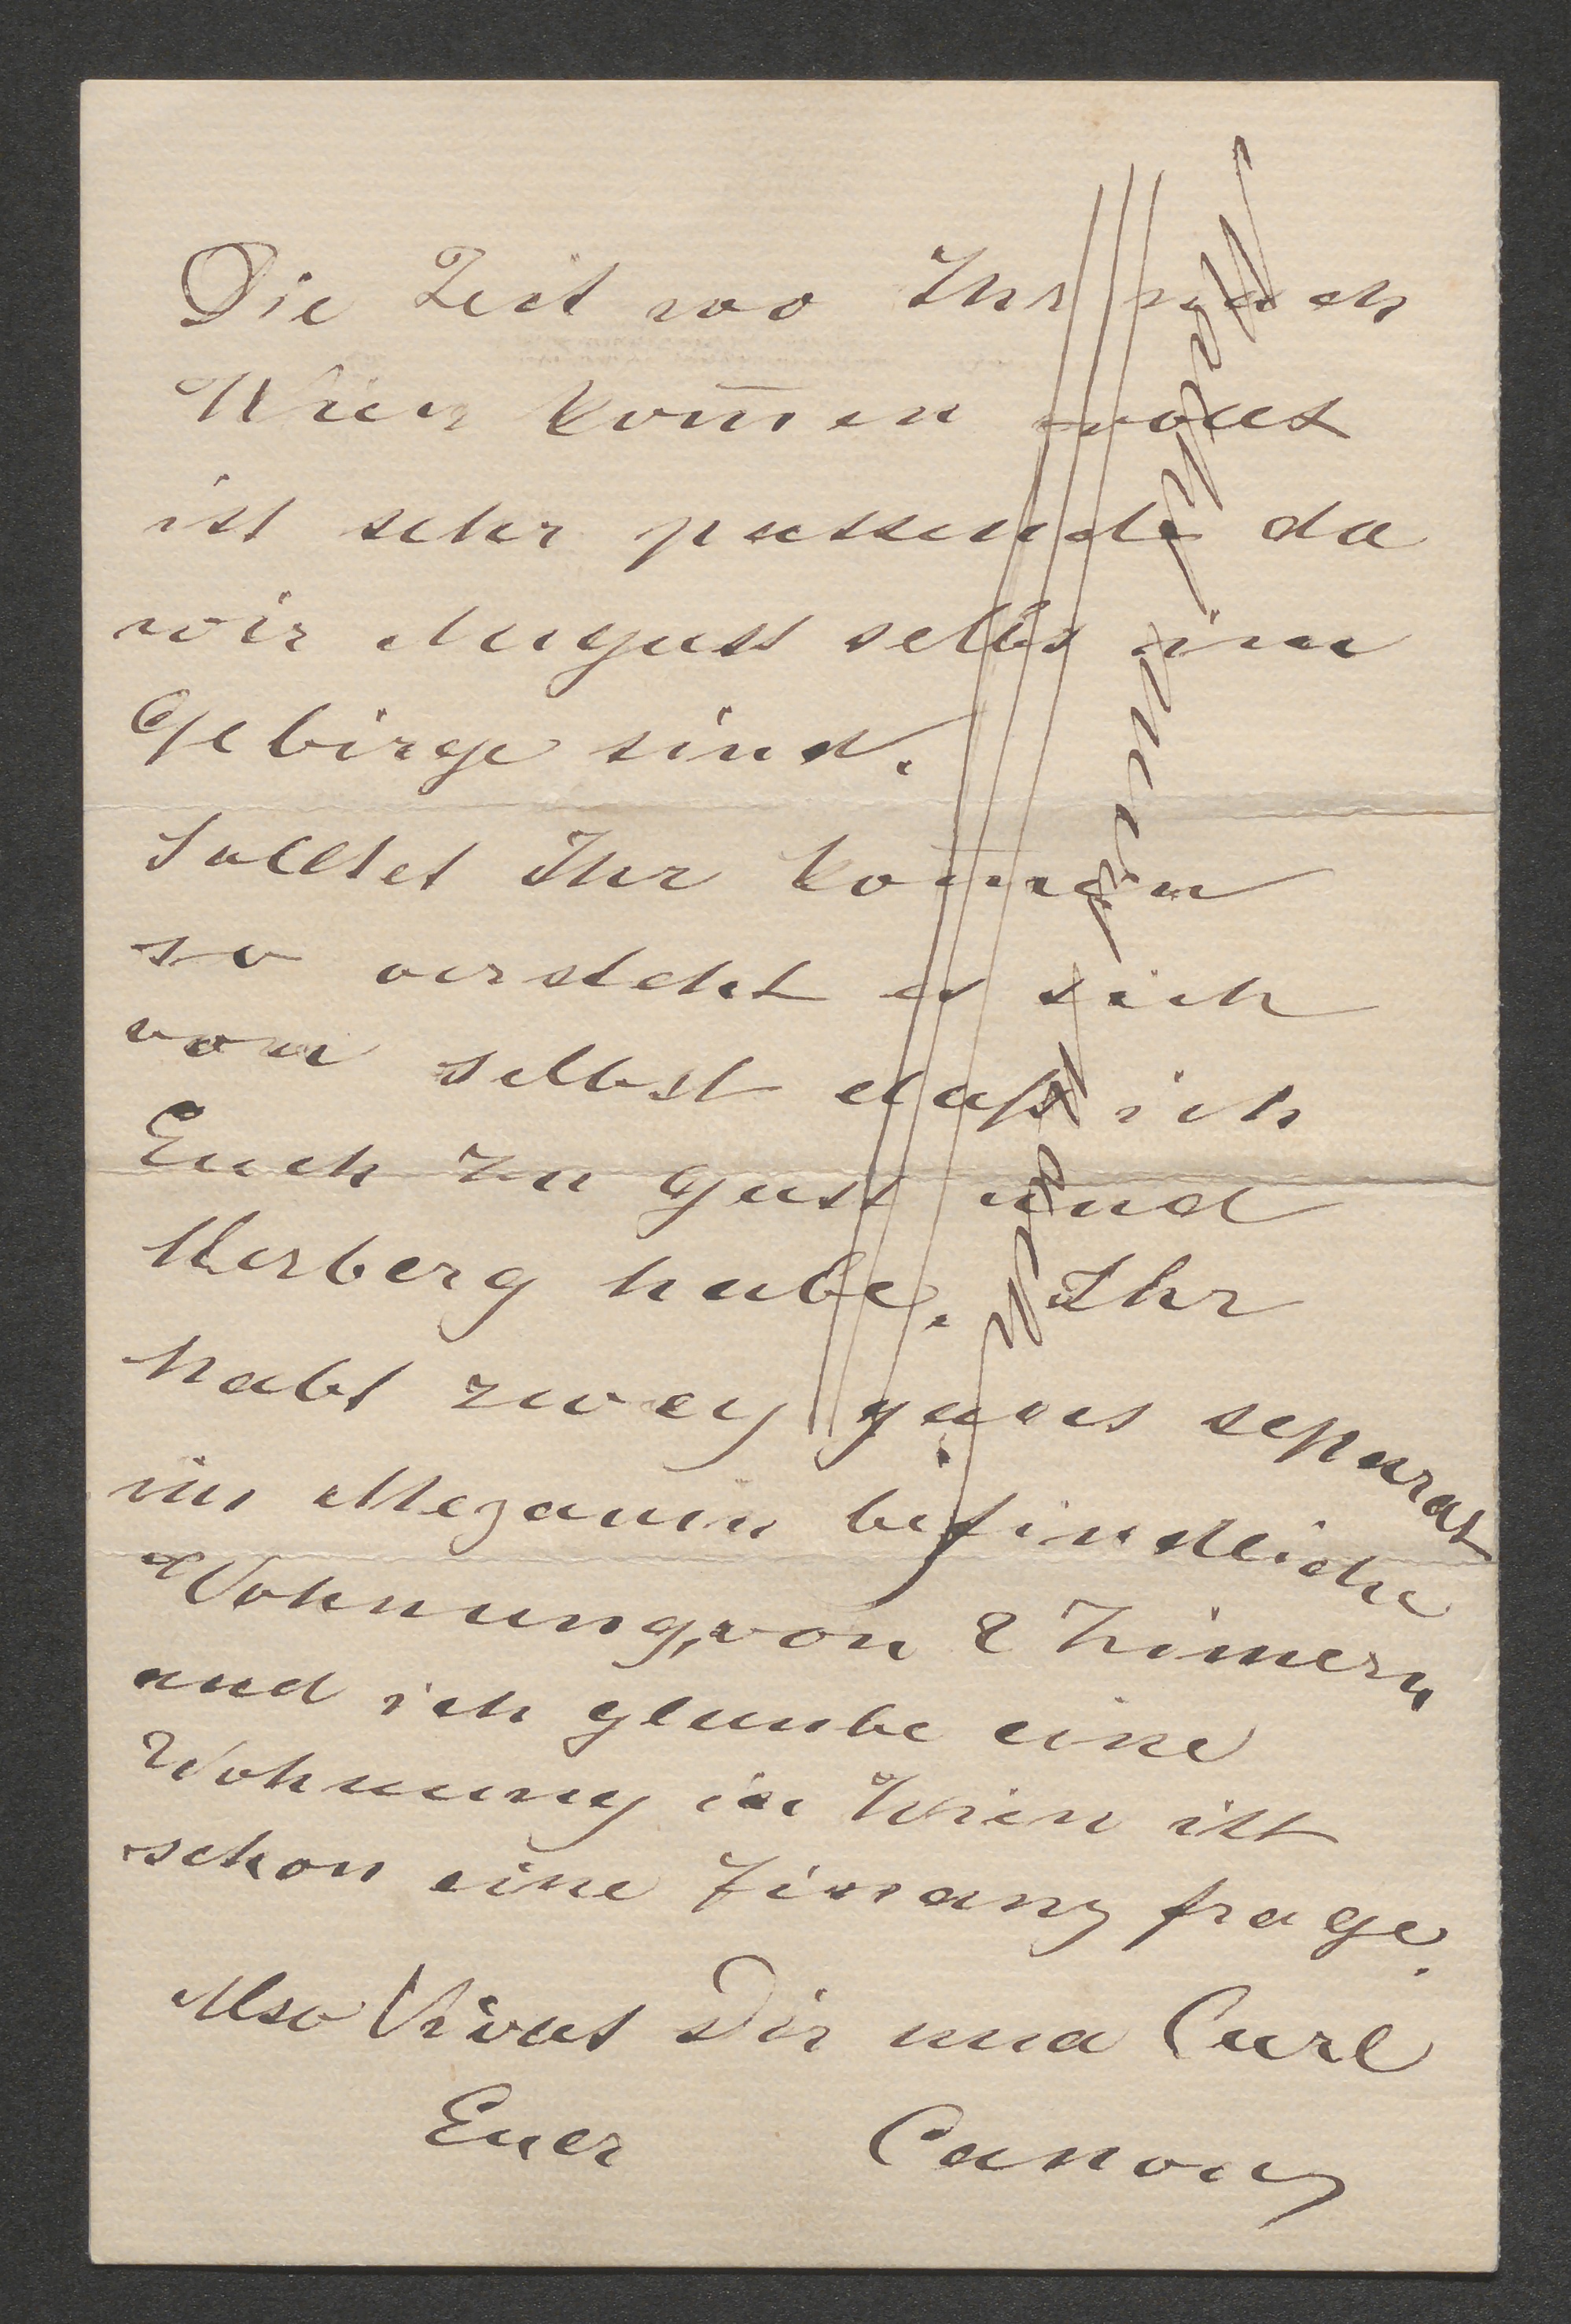 Die Zeit wo Ihr nach
Wien kom̄en wollt
ist sehr passend da
wir August selbst im
Gebirge sind.
Solltet Ihr kom̄en
so versteht es sich
von selbst daß ich
Euch zu Gast und
Herberg habe. Ihr
habt zwey ganz separat
im Mezanin befindliche
Wohnung, von 2 Zimern
und ich glaube eine
Wohnung in Wien ist
schon eine Finanz frage.
Also Vivat Dir und Carl
Euer Canon